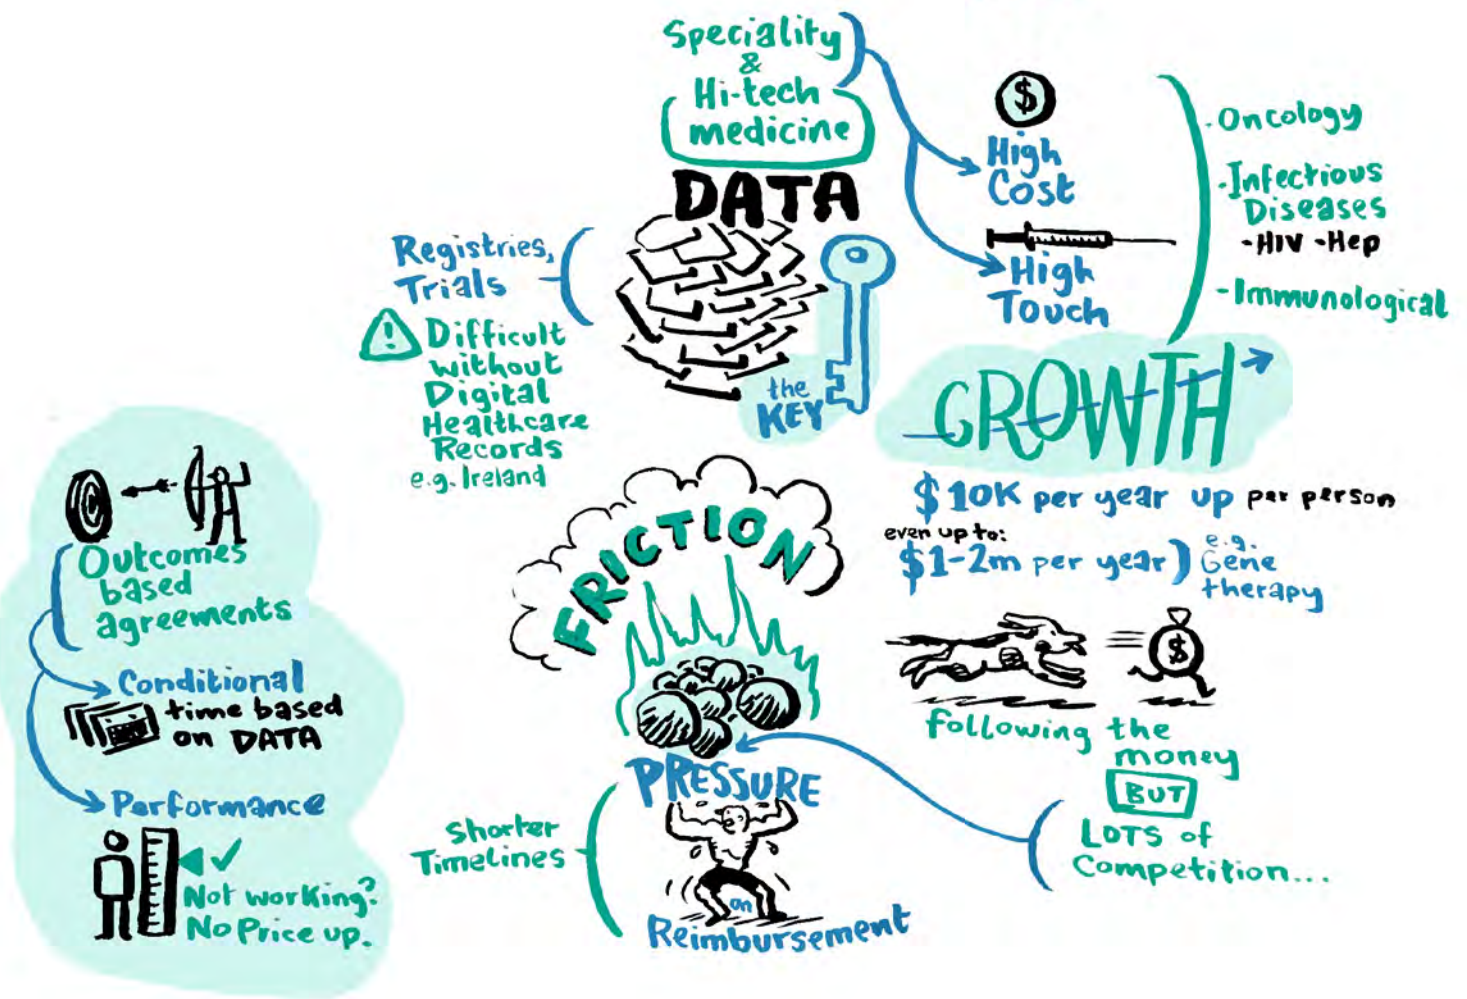 Speciality
&
Hi-tech
medicine
$
High
Cost
High
Touch
-Oncology
-Infectious
Diseases
-HIV -Hep
-Immunological
DATA
the
KEY
Registries,
Trials
Difficult
without
Digital
Healthcare
Records
e.g. Ireland
GROWTH
$10K per year up per person
even up to:
$1-2m per year) e.g.
Gene
therapy
$
following the
money
BUT
LOTS of
Competition...
FRICTION
PRESSURE
on
Reimbursement
Shorter
Timelines
Outcomes
based
agreements
Conditional
time based
on DATA
Performance
Not working?
No Price up.